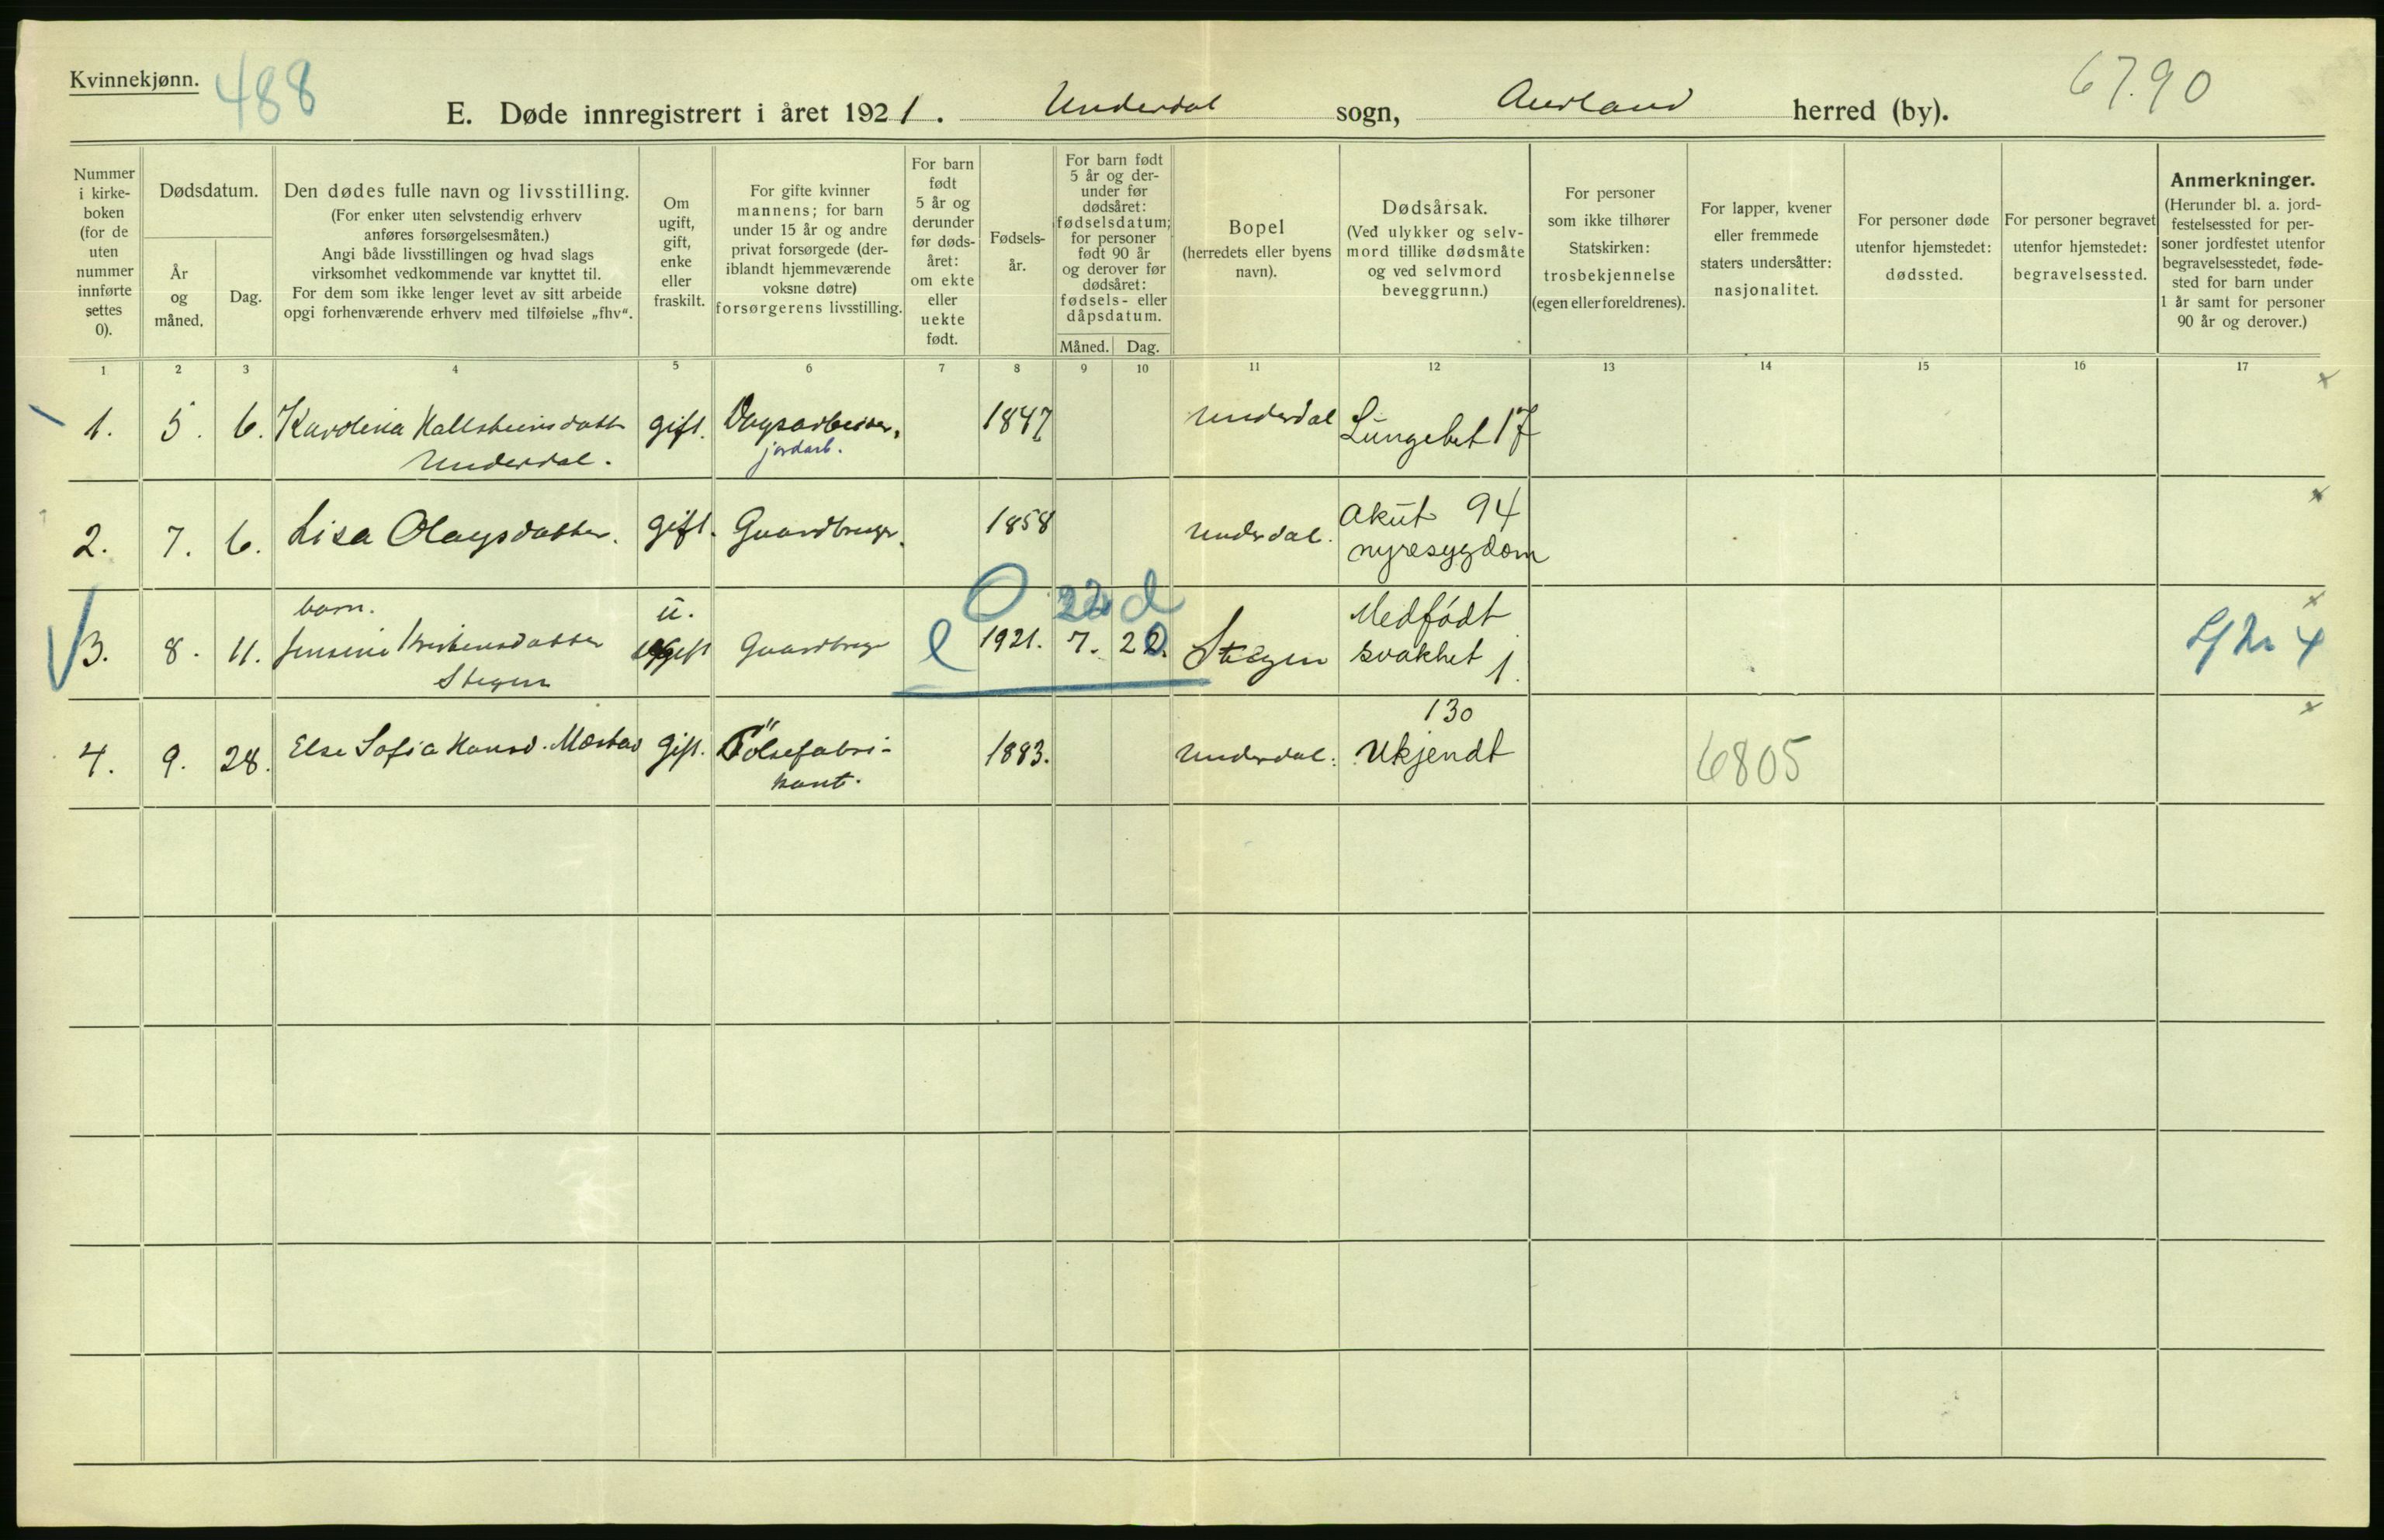 Kvinnekjønn.
488
E. Døde innregistrert i året 1921. Underdal sogn, Aurland herred (by).
6790
Nummer i kirke-boken (for de uten nummer innførte settes 0).
Dødsdatum.
År og måned.
Dag.
Den dødes fulle navn og livsstilling.
(For enker uten selvstendig erhverv
anføres forsørgelsesmåten.)
Angi både livsstillingen og hvad slags
virksomhet vedkommende var knyttet til.
For dem som ikke lenger levet av sitt arbeide
opgi forhenværende erhverv med tilføielse „fhv“.
Om ugift, gift, enke eller fraskilt.
For gifte kvinner
mannens; for barn
under 15 år og andre
privat forsørgede (der-
iblandt hjemmeværende
voksne døtre)
forsørgerens livsstilling.
For barn født 5 år og derunder før døds-året: om ekte eller uekte født.
Fødsels-år.
For barn født
5 år og der-
under før
dødsåret:
fødselsdatum;
for personer
født 90 år
og derover før
dødsåret:
fødsels- eller
dåpsdatum.
Måned. Dag.
Bopel
(herredets eller byens
navn).
Dødsårsak.
(Ved ulykker og selv-
mord tillike dødsmåte
og ved selvmord
beveggrunn.)
For personer
som ikke tilhører
Statskirken:
trosbekjennelse
(egen eller foreldrenes).
For lapper, kvener
eller fremmede
staters undersåtter:
nasjonalitet.
For personer døde
utenfor hjemstedet:
dødssted.
For personer begravet
utenfor hjemstedet:
begravelsessted.
Anmerkninger.
(Herunder bl. a. jord-
festelsessted for per-
soner jordfestet utenfor
begravelsesstedet, føde-
sted for barn under
1 år samt for personer
90 år og derover.)
1 2 3 4 5 6 7 8 9 10 11 12 13 14 15 16 17
1. 5. 6. Karolina Hallsteinsdatt gift. Dagsarbeider, 1847 Underdal Lungebet 17
Underdal. jordarb.
2. 7. 6. Lisa Olaysdatter. gift. Gaardbruger. 1858 Underdal. Akut 94
nyresygdom
barn. u. 0 22 d Medfødt
3. 8. 11. Jensine Kristensdatter ugift Gaardbruge e 1921. 7. 20. Stegen svakhet 1.
Stegen
130
4. 9. 28. Else Sofia Hansd. Mæstad gift. Pølsefabri- 1883. Underdal. Ukjendt 6805
kant.